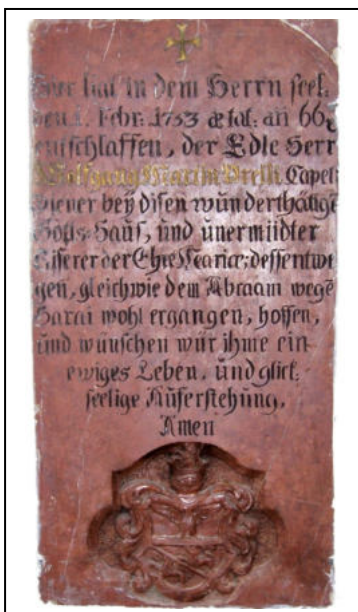 Hier hat in dem Herrn seel:
den 1. Febr: 1733 ætat: añ 66
entschlaffen, der Edle Herr
Wolfgang Martin Capel:
Diener bey disen wunderthätigẽ
Gotts-Hauß, und unermüdter
Eiferer der Ehre Mariæ; dessentwe
gen, gleichwie dem Abraam wegẽ
Sarai wohl ergangen, hoffen,
und wünschen wür ihme ein
ewiges Leben, und glick,
seelige Auferstehung,
Amen